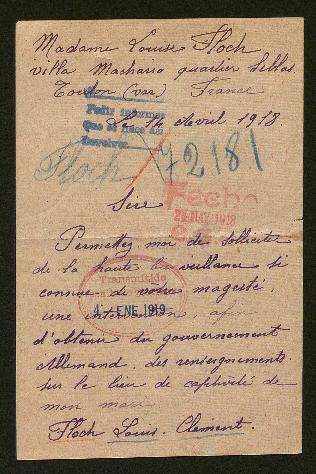 Madame Louise Floch
villa Macharia quartier
Toulon (var) France
Pedir informes
Que se hace así
Le 14 Avril 1918.
Floch 72181
Fecha
28 MAY 1918
Sire
Permettez moi de solliciter
de la haute bienveillance si
connue de votre magesté,
Transmitido
une intervention, afin
4 - ENE 1919
d'obtenir du gouvernement
Allemand, des renseignements
sur le lieu de captivité de
mon mari
Floch Louis. Clément.